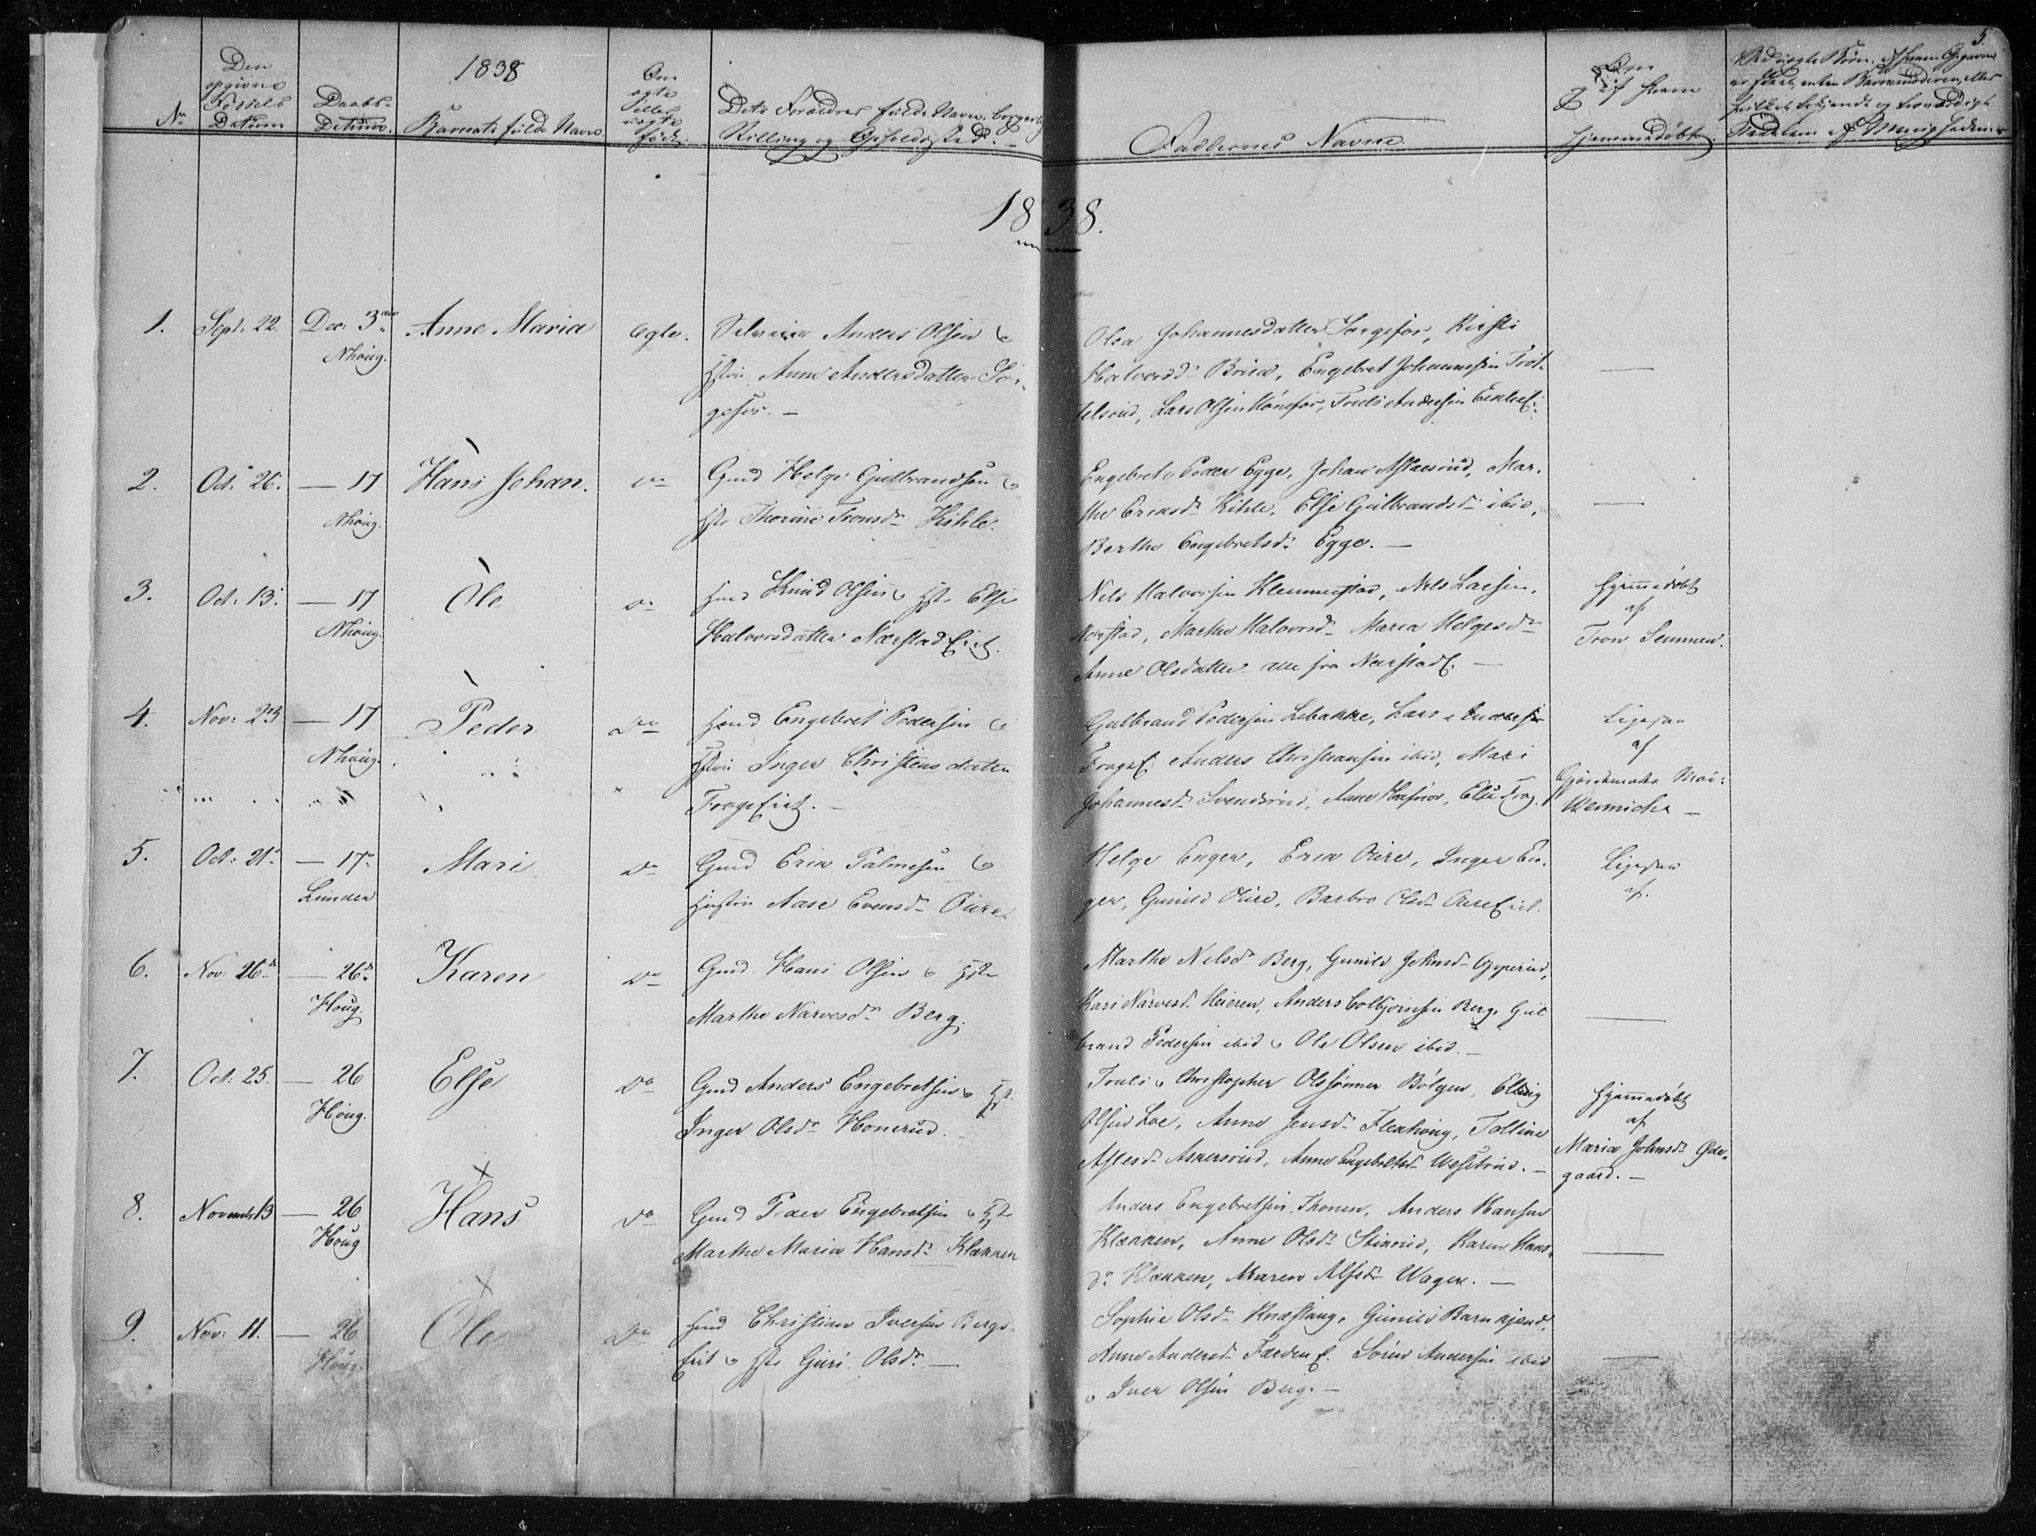 5.
1838
No
Den
opgivne
Fødsels
Datum
Daabs-
Datum.
Barnets fulde Navn.
Om
ægte
eller
uægte
født.
Dets Forældres fulde Navn, borgerlig
Stilling og Opholdssted.
Faddernes Navne.
Om
af hvem
hjemmedøbt
1838.
1. Sept. 22. Dec: 3die Anne Maria ægte. Selveier Anders Olsen &
Nhoug. Hstru Anne Andersdatter Sør-
gefos. —
Olea Johannesdatter Sørgefos, Kirsti
Halvorsd. Brua, Engebret Johannesen Trøt-
telsrud, Lars Olsen Hønefos, Truls Andersen
2. Oct. 26. — 17 Hans Johan. do Gmd Helge Gulbrandsen &
Nhoug. Hst. Thorine Tronsd. Kihle.
Engebret & Peder Egge, Johan Aslaesrud, Mar-
the Eriksd. Kihle, Else Gulbrandsd. ibid,
Berthe Engebretsd. Egge. —
3. Oct: 13. — 17 Ole do Hmd Knud Olsen & Hst. Else
Nhoug. Halvorsdatter Nærstadeiet.
Nils Halvorsen Klemmestad, Nels Larsen
Nerstad, Marthe Halvorsd. Maria Helgesd.
Anne Olsdatter alle fra Nærstade. —
Hjemmedøbt
af
Tron Semmen.
4. Nov: 23 — 17 Peder do Hmd Engebret Pedersen &
Nhoug. Hstru Inger Christensdatter
Frogeiet. —
Gulbrand Pedersen Lobakke, Lars Andersen
Froge: Anders Christiansen ibid, Mari
Johannesd. Svendsrud, Anne Else Frog.
Ligesaa
af
Gjordemoder Mad:
Wernicke —
5. Oct: 21. — 17. Mari do Gmd Erik Palmesen &
Lunder Hustru Aase Evensd. Oure
Helge Enger, Erik Oure, Inger En-
ger, Gunild Oure, Barbro Olsd. Oureeiet.
Ligesaa
af.
6. Nov: 26. — 26. Karen do Gmd. Hans Olsen & Hst.
Houg. Marthe Narvesd. Berg.
Marthe Nelsd. Berg, Gunild Johnsd. Opperud,
Kari Narvesd. Heieren, Anders Colbjørnsen Berg, Gul
brand Pedersen ibid & Ole Olsen ibid. —
7. Oct. 25. — 26 Else do Gmd Anders Engebretsen & Hst.
Houg. Inger Olsd. Honerud.
Truls & Christopher Olssønner Bølgen, Elling
Olsen Loe, Anne Jensd. Flexhoug, Talline
Aslesd. Askersrud, Anne Engebretsd. Wesetrud. —
Hjemmedøbt
af
Maria Johnsd. Øde-
gaard. —
8. Novemb. 13 — 26 Hans do Gmd Peder Engebretsen & Hst.
Houg Marthe Maria Hansd. Klækken
Anders Engebretsen Thonen, Anders Hansen
Klækken, Anne Olsd. Stinrud, Karen Hans-
d. Klækken, Maren Alfsd. Wager. —
9. Nov: 11. — 26. Ole do Hmd Christian Iversen Bergs-
Houg. eiet & Hst. Guri Olsd. —
Sophie Olsd. Knæstang, Gunild Barnkjend,
Anne Andersd. Færdene. Søren Andersen ibid
& Iver Olsen Berg. —